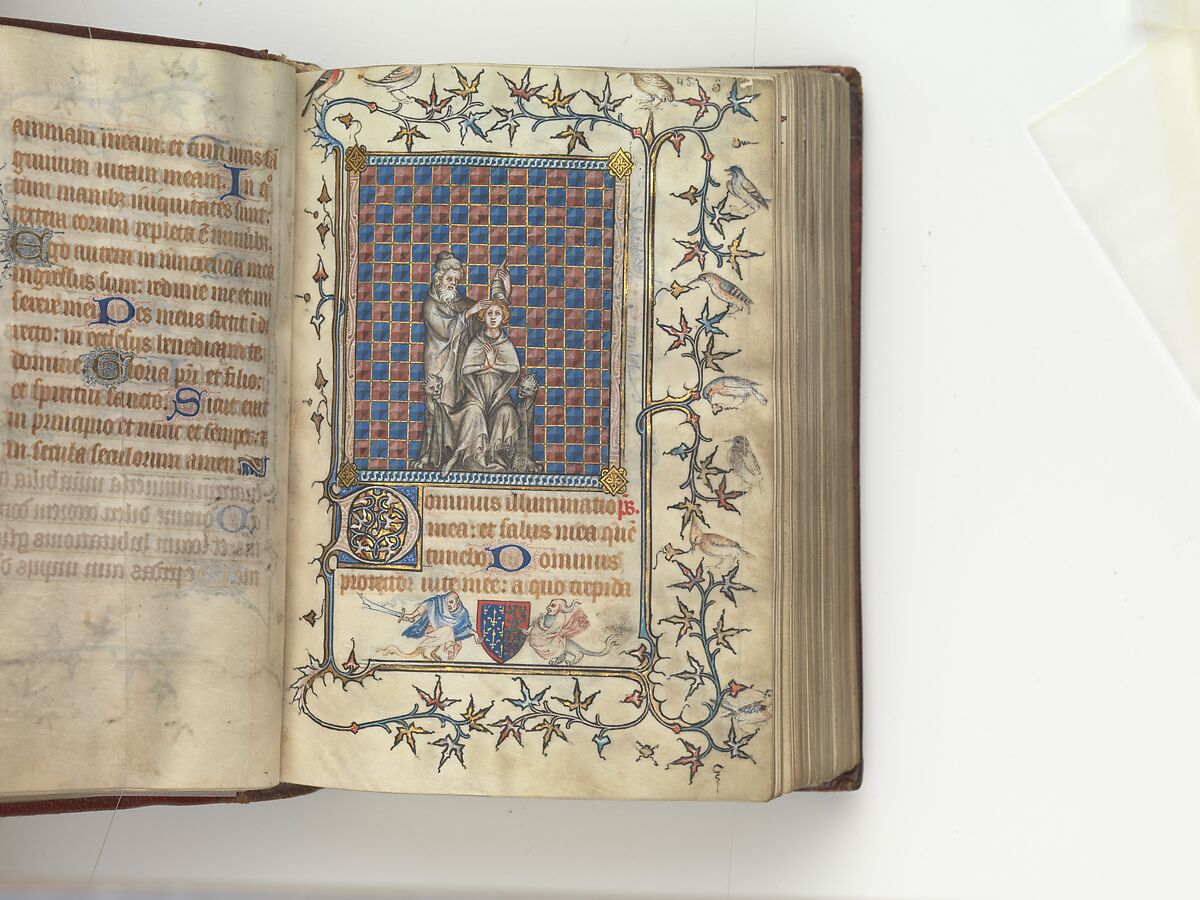 animam meam: et cum viris sã
guinum vitam meam. In q°
rum manibz iniquitates sunt:
dextera eorum repleta ẽ munibz.
Ego autem in innocencia mea
ingressus sum: redime me et mi
serere mei. Pes meus stetit ĩ di
recto: in ecclesiis benedicam te
domine. Gloria pri et filio:
et spiritui sancto. Sicut erat
in principio et nunc et semper: et
in secula seculorum amen.
45
Dominus illuminatio ps.
mea: et salus mea quẽ
timebo. Dominus
protector vite mee: a quo trepida